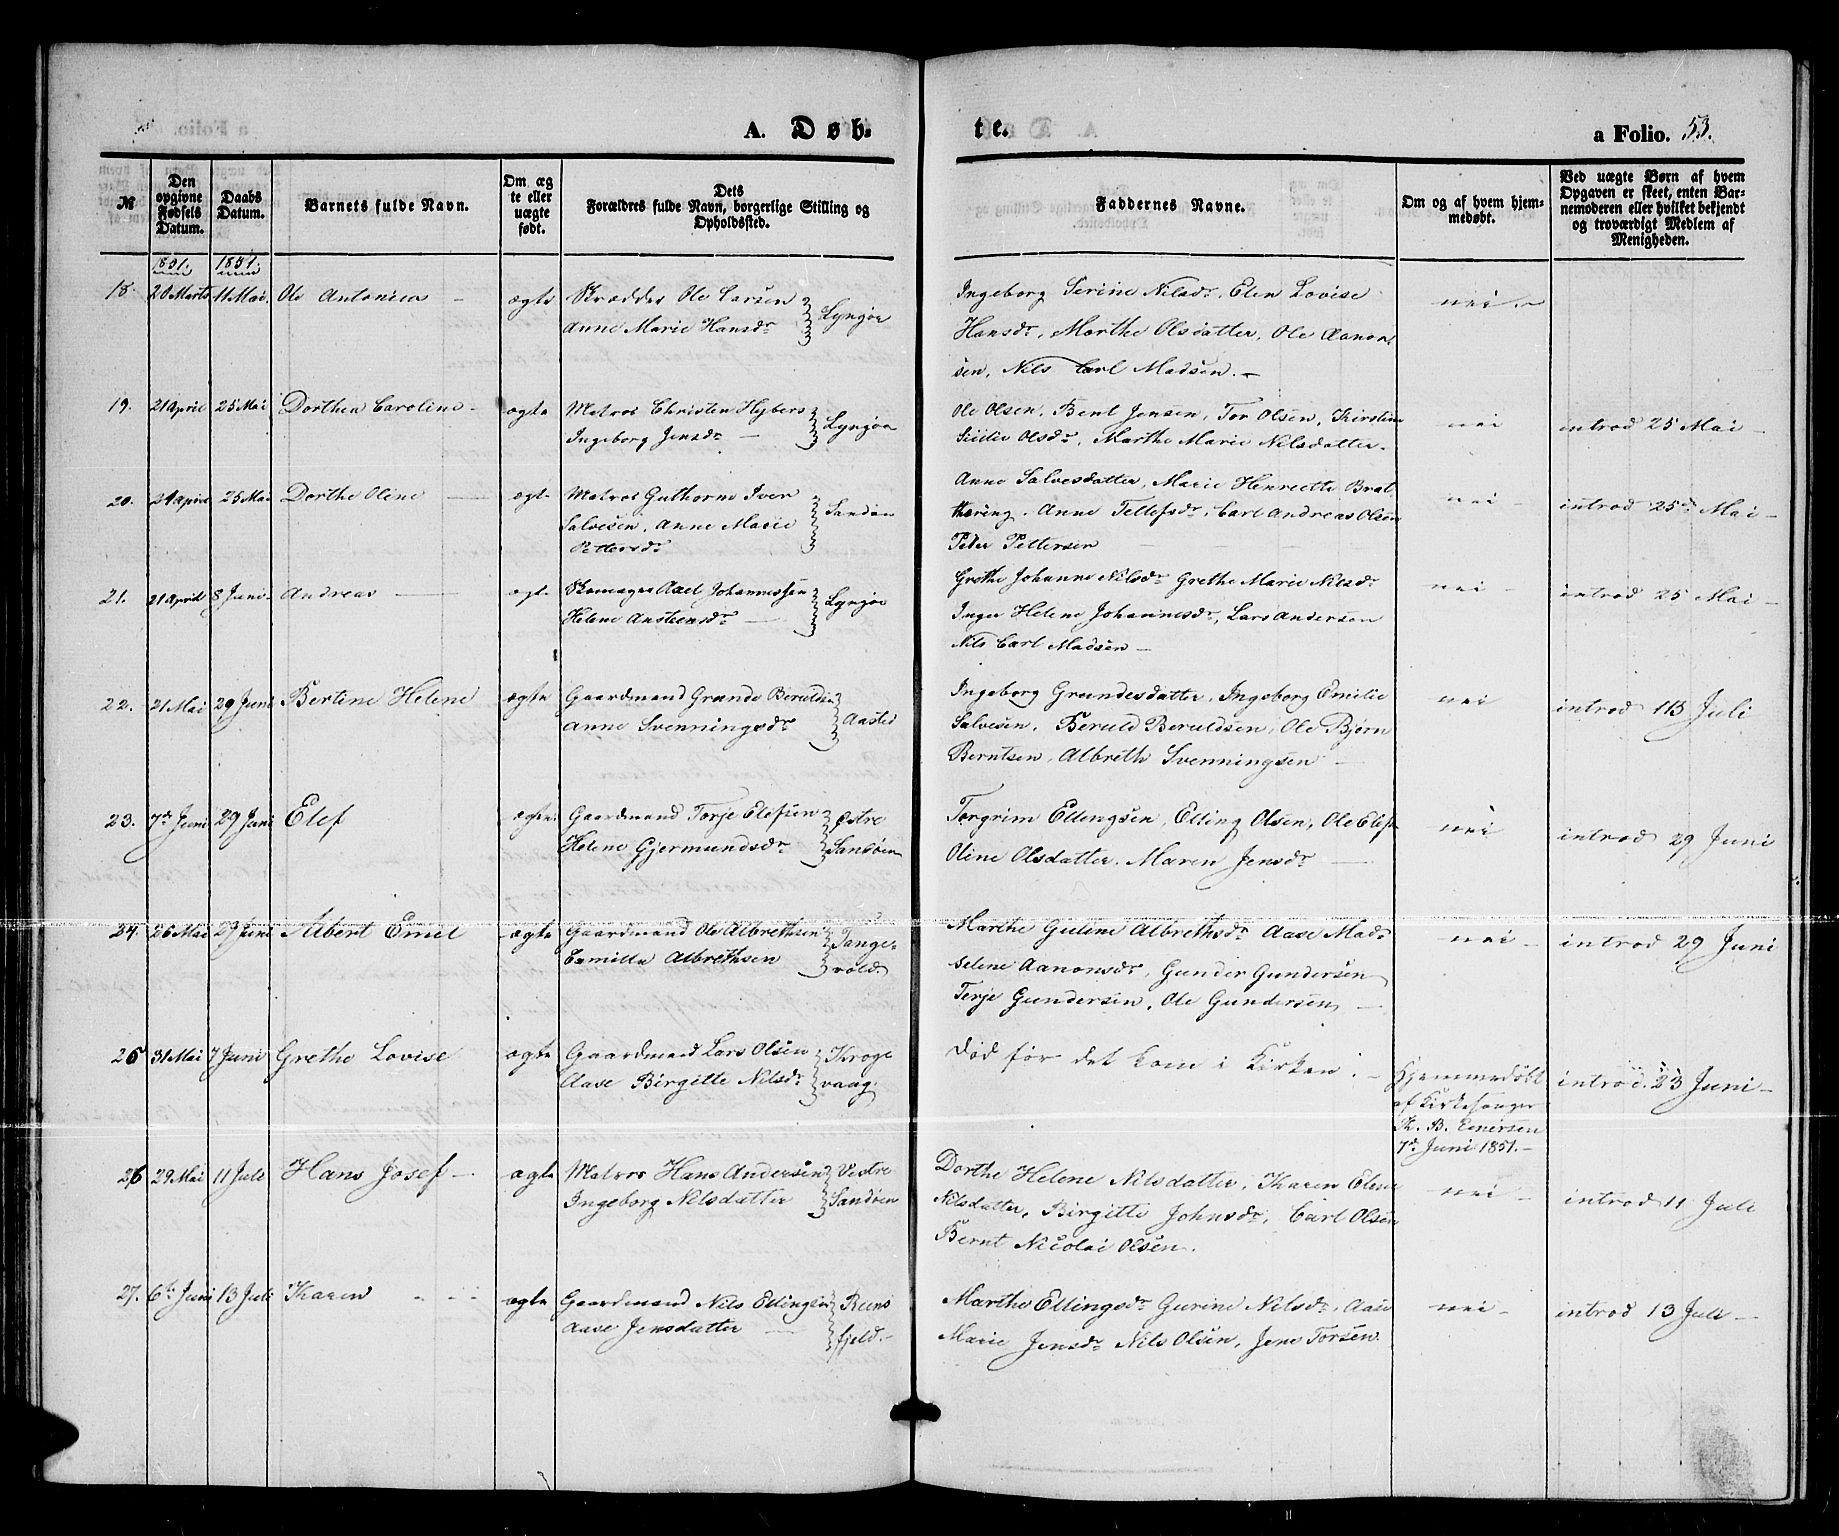 A. Døb-
te.
a Folio. 53.
№
Den opgivne Fødsels Datum.
Daabs Datum.
Barnets fulde Navn.
Om ægte eller uægte født.
Dets Forældres fulde Navn, borgerlige Stilling og Opholdssted.
Faddernes Navne.
Om og af hvem hjemmedøbt.
Ved uægte Børn af hvem Opgaven er skeet, enten Barnemoderen eller hvilket bekjendt og troværdigt Medlem af Menigheden.
1851. 1851.
18 20 Marts 11 Mai. Ole Antonius - ægte Skrædder Ole Larsen
Anne Marie Hansdr Lyngør
Ingeborg Serine Nilsdr, Elen Lovise
Hansdr, Marthe Olsdatter, Ole Aanon
sen, Nils Carl Madsen. -
nei -
19. 21 April 25 Mai Dorthea Caroline - ægte Matros Christen Hybers
Ingeborg Jensdr - Lyngør
Ole Olsen, Bent Jensen, Tor Olsen, Kirstine
Sicilie Olsdr, Marthe Marie Nilsdatter.
nei
introd 25 Mai -
20. 24 April 25 Mai Dorthe Oline - ægte Matros Guthorm Iver
Salvesen, Anne Marie
Pettersdr Sandøn
Anne Salvesdatter, Marie Henriette Brat
thering, Anne Tellefsdr, Carl Andreas Olsen
Peter Pettersen
nei -
introd 25 Mai -
21. 21 April 8 Juni. Andreas - ægte Skomager Axel Johannessen
Helene Austeensdr - Lyngør
Grethe Johanne Nilsdr Grethe Marie Nilsdr
Inger Helene Johannesdr, Lars Andersen
Nils Carl Madsen -
nei -
introd 25 Mai -
22. 21 Mai 29 Juni Bertine Helene ægte Gaardmand Grunde Beruldsen
Anne Svenningsdr Aasted
Ingeborg Grundesdatter, Ingeborg Emilie
Salvesen, Beruld Beruldsen, Ole Bjørn
Berntsen, Albreth Svenningsen -
nei
introd 13 Juli
23. 7de Juni 29 Juni Elef ægte Gaardmand Torje Elefsen
Helene Gjermundsdr Østre Sandøen
Torgrim Ellingsen, Elling Olsen, Ole Elefs
Oline Olsdatter, Maren Jensdr -
nei
introd 29 Juni
24. 26 Mai 29 Juni Albert Emil ægte Gaardmand Ole Albrethsen
Camilla Albrethsen Tangevold.
Marthe Guline Albrethsdr Aase Mad
selene Aanonsdr, Gunder Gundersen
Terje Gundersen, Ole Gundersen, -
nei -
introd 29 Juni
25 31 Mai 7 Juni Grethe Lovise ægte Gaardmand Lars Olsen
Aase Birgitte Nilsdr Krogevaag.
død før det kom i Kirken. -
Hjemmedøbt
af Kirkesanger
K. B. Einersen
7de Juni 1851. -
introd. 23 Juni -
26 29 Mai 11 Juli Hans Josef - ægte Matros Hans Andersen
Ingeborg Nilsdatter Vestre Sandøen
Dorthe Helene Nilsdatter, Karen Elene
Nilsdatter, Birgitte Johnsdr, Carl Olsen
Bernt Nicolai Olsen.
nei -
introd 11 Juli
27. 6te Juni 13 Juli Karen ægte Gaardmand Nils Ellingsen
Aase Jensdatter - Runsfjeld. -
Marthe Ellingsdr Gurine Nilsdr, Aase
Marie Jensdr Nils Olsen, Jens Torsen.
nei -
introd 13 Juli -